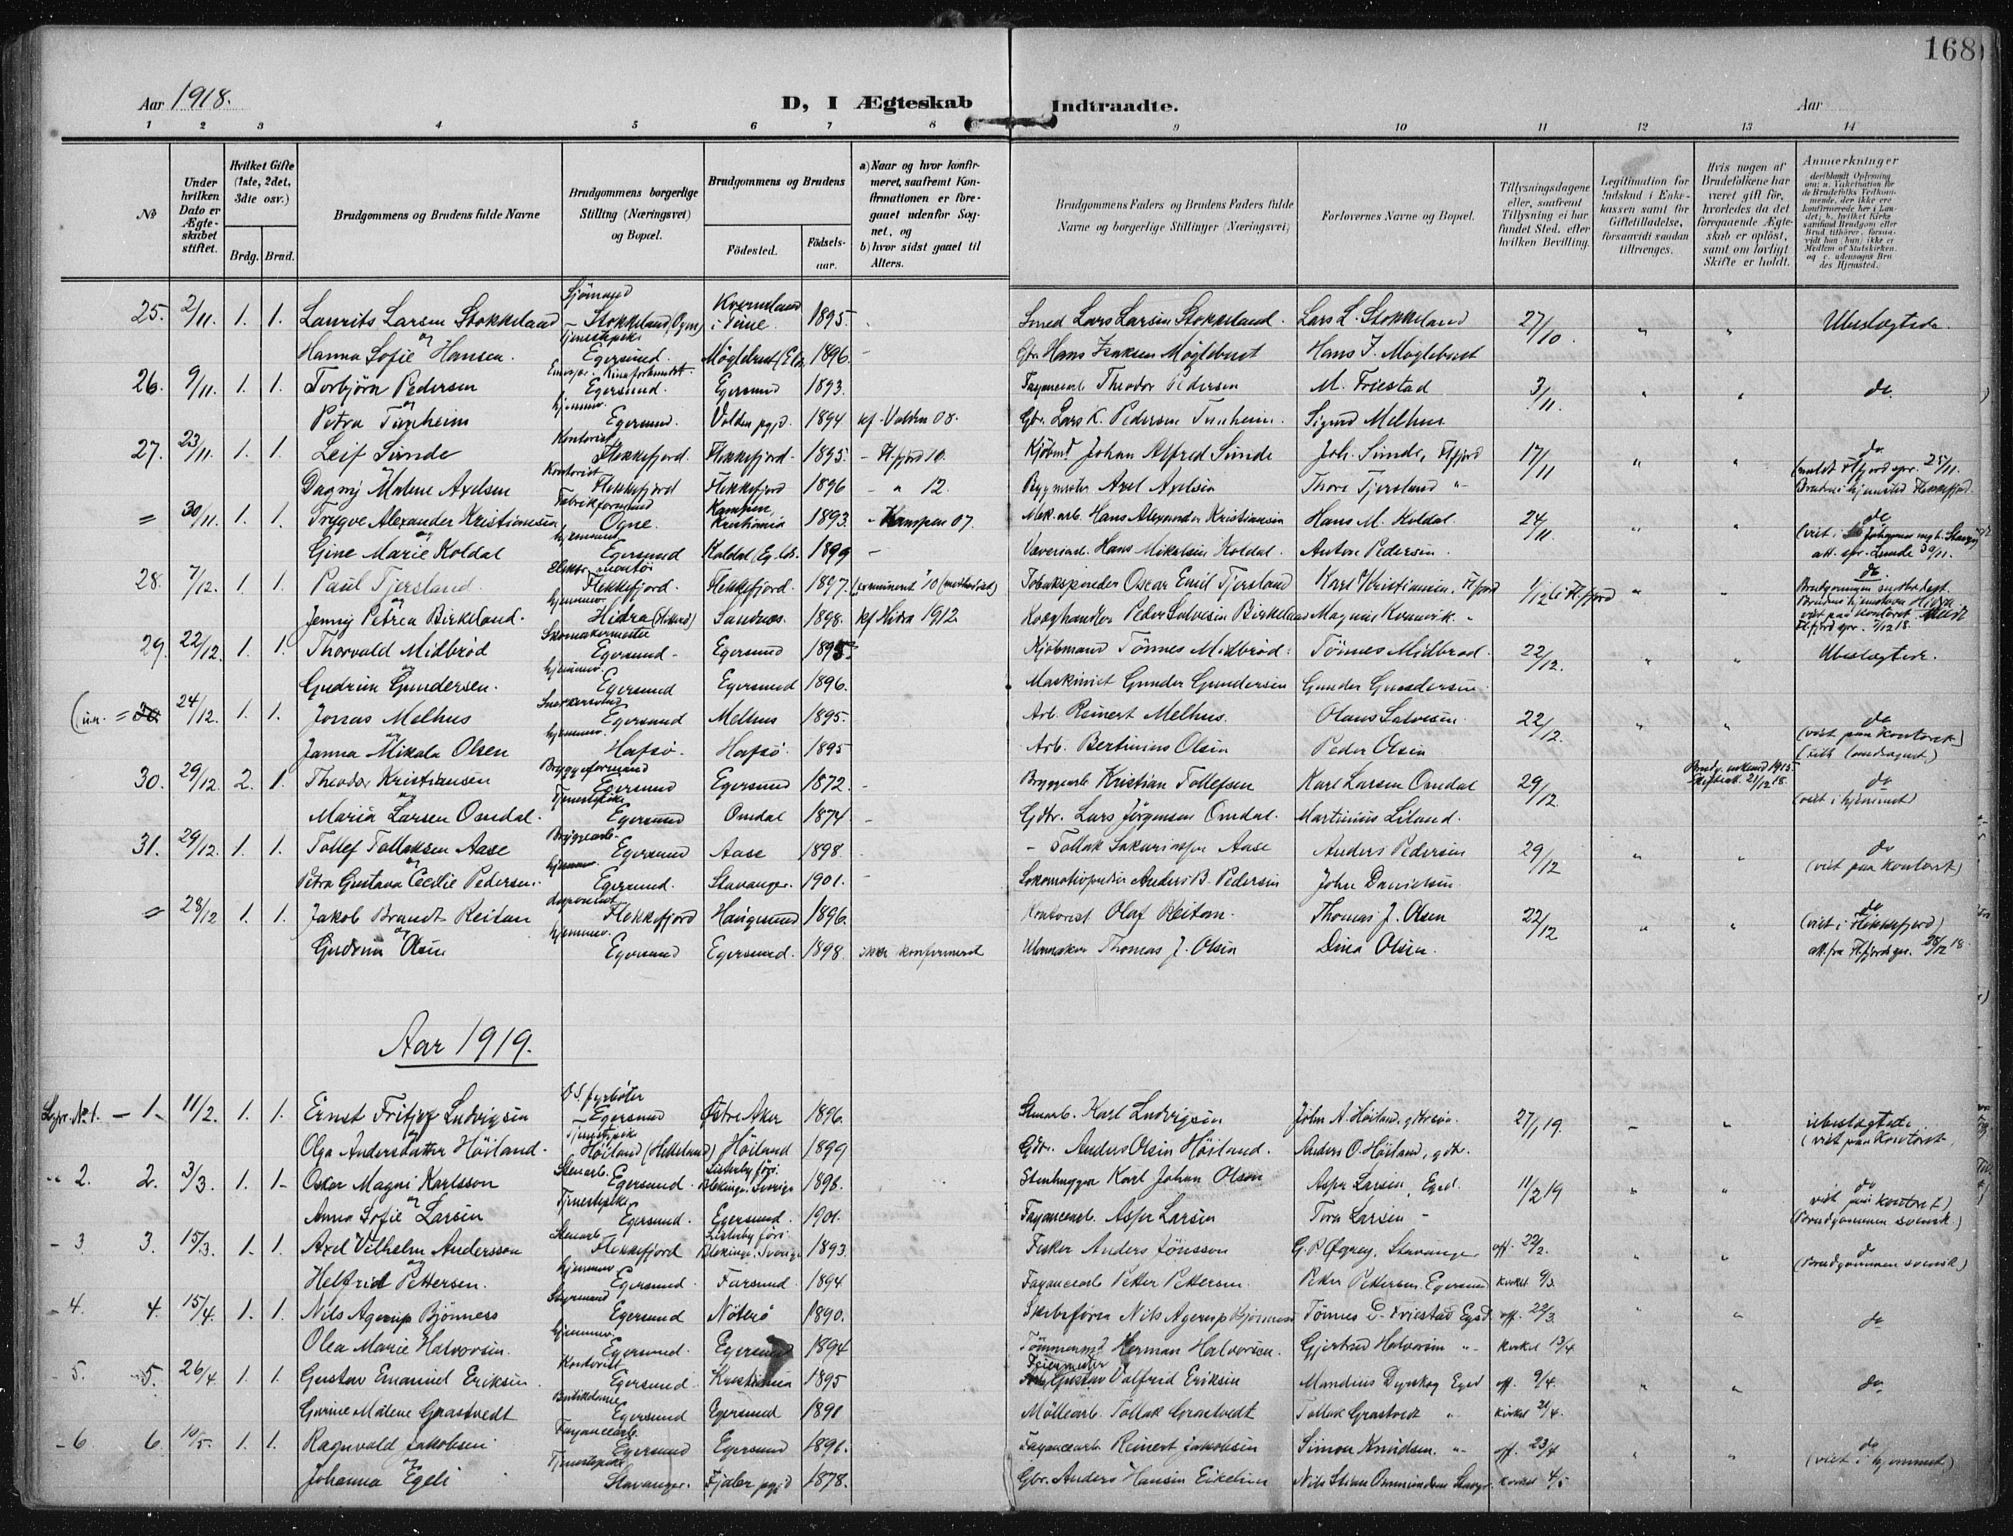 168
Aar 1918.
D, I Ægteskab Indtraadte.
Aar
1 2 3 4 5 6 7 8 9 10 11 12 13 14
№
Under hvilken Dato er Ægteskabet stiftet.
Hvilket Gifte (1ste, 2det, 3die osv.)
Brdg. Brud.
Brudgommens og Brudens fulde Navne
Brudgommens borgerlige Stilling (Næringsvei) og Bopæl.
Brudgommens og Brudens
Fødested.
Fødselsaar.
a) Naar og hvor konfirmeret, saafremt Konfirmationen er foregaaet udenfor Sognet, og
b) hvor sidst gaaet til Alters.
Brudgommens Faders og Brudens Faders fulde Navne og borgerlige Stillinger (Næringsvei)
Forlovernes Navne og Bopæl.
Tillysningsdagene eller, saafremt Tillysning ei har fundet Sted, efter hvilken Bevilling.
Legitimation for Indskud i Enkekassen samt for Giftetilladelse, forsaavidt saadan tiltrænges.
Hvis nogen af Brudefolkene har været gift før, hvorledes da det foregaaende Ægteskab er opløst, samt om lovligt Skifte er holdt.
Anmerkninger
25. 2/11. 1. 1. Laurits Larsen Stokkeland Sjømand Stokkeland, Ogne Kverneland i Time. 1895. Smed Lars Larsen Stokkeland. Lars L. Stokkeland 27/10. " " Ubeslægtede.
og Hanna Sofie Hansen. Tjenestepike Egersund. Møglebust 1896. – Gbr. Hans Isaksen Møglebust Hans I. Møglebust
26. 9/11. 1. 1. Torbjørn Pedersen Egersund. Egersund 1893. Fayancearb. Theodor Pedersen M. Friestad 3/11. " " do.
og Petra Tunheim hjemmev. Egersund. Volden pgjd. 1894 kf. Volden 08. Gbr. Lars K. Pedersen Tunheim. Sigurd Melhus
27. 23/11. 1. 1. Leif Sunde Kontorist Flekkefjord. Flekkefjord. 1895. – Flfjord 10. Kjøbmd Johan Alfred Sunde Joh. Sunde, Flfjord 17/11 " " do
Dagny Malene Axelsen Kontorist Flekkefjord Flekkefjord 1896 – " 12. Bygmester Axel Axelsen Thore Tjersland " Brudens hjemsted Flekkefjord.
= 30/11. 1. 1. Trygve Alexander Kristiansen Fabrikformand Ogne. Kampen, Kristiania 1893. – Kampen 07. Mek. arb. Hans Alexander Kristiansen Hans M. Koldal 24/11. " " do
og Gine Marie Koldal hjemmev. Egersund Koldal Eg. lds. 1899 – Væveriarb. Hans Mikalsen Koldal. Anton Pedersen. att. spr. Lunde 30/11.
28. 7/12. 1. 1. Paul Tjersland Elektr. montør Flekkefjord. Flekkefjord. 1897. Tobakspinder Oscar Emil Tjersland Karl Kristiansen, Flfjord 1/12 i Flfjord " " do
og Jenny Petrea Birkeland. hjemmev. Hidra Sandnes. 1898. kf Hidra 1912. Peder Salvesen Birkeland Magnus Kvinnvik "
29. 22/12. 1. 1. Thorvald Midbrød Skomakermester Egersund – Egersund 1895. Kjøbmand Tønnes Midbrød. Tønnes Midbrød. 22/12. " " Ubeslægtede.
og Gudrun Gundersen. hjemmev. Egersund Egersund 1896. Maskinist Gunder Gundersen Gunder Gundersen.
(u.n. = 30. 24/12. 1. 1. Jonas Melhus Snekkersvend Egersund Melhus 1895. Arb. Reinert Melhus. Olaus Salvesen 22/12. " " do
og Janna Mikala Olsen hjemmev. Hafsø. Hafsø. 1895 Arb. Bertinius Olsen Peder Olsen (viet paa kontoret)
30. 29/12. 2. 1. Theodor Kristiansen Bryggeformand Egersund Egersund 1872. – Bryggearb. Kristian Tollefsen Karl Larsen Omdal 29/12. Brudg. enkemd 1915 Skifteatt. 21/12 18. do
og Maria Larsen Omdal. Tjenestepike Egersund Omdal 1874 – Gdbr. Lars Jørgensen Omdal. Martinius Liland. (viet i hjemmet)
31. 29/12. 1. 1. Tollef Tollaksen Aase Bryggearb. Egersund Aase 1898. – Tollak Sakariasen Aase Anders Pedersen 29/12 " " do
og Petra Gustava Cecilie Pedersen. hjemmev. Egersund. Stavanger. 1901. Lokomotivpudser Anders B. Pedersen John Danielsen (viet paa kontoret)
= 28/12 1. 1. Jakob Brandt Reitan Flekkefjord Haugesund 1896. Kontorist Olaf Reitan. Thomas J. Olsen 22/12 " " do (viet i Flekkefjord)
og Gudrun Olsen hjemmev. Egersund Egersund. 1898. ikke konfirmeret Urmaker Thomas J. Olsen Dina Olsen. att. fra Flfjords spr. 28/12 18.
Aar 1919.
Lspr. No 1. – 1. 11/2. 1. 1. Ernst Fritjof Ludvigsen D.S. fyrbøter – Egersund Østre Aker 1896. Stenarb. Karl Ludvigsen John A. Høiland, 27/1 19. – " ubeslægtede
og Olga Andersdatter Høiland. Tjenestepik Høiland (Helleland) Høiland 1899 Gdbr. Anders Olsen Høiland. Anders O. Høiland, gdbr. (viet paa Kontoret.
" 2. 2. 3/3. 1. 1 – Oskar Magni Karlsson Stenarb. Egersund. Listerby førs. Blekinge. Sverige 1898. Stenhugger Karl Johan Olson Asper Larsen, Egsd. 11/2 19 " " do viet paa kontoret)
og Anna Sofie Larsen Tjenestepike Egersund. Egersund. 1901. Fayancearb. Asper Larsen Tora Larsen – (Brudgommen svensk.)
– 3 3. 15/3. 1. 1. Axel Vilhelm Andersson Stenarb. Flekkefjord Listerby førs. Blekinge. Sverige 1893. Fisker Anders Jönsson G. P. Øgrey, Stavanger off. 22/2. " " do
og Helfrid Pettersen. hjemmev. Egersund. Farsund. 1894 Fayancearb Petter Pettersen. Peter Pettersen Egersund kirkel 9/3 (Brudgommen svensk.)
– 4. 4. 15/4. 1. 1. Nils Agerup Bjønness Styrmand Egersund Nøterø 1890. Skibsfører Nils Agerup Bjønness Tønnes D. Friestad Egsd. off. 22/3. " " do
Olea Marie Halvorsen. hjemmev. Egersund. Egersund 1894 Tømmermd Herman Halvorsen. Gjertrud Halvorsen " kirkel 13/4
– 5. 5. 26/4. 1. 1 Gustav Emanuel Eriksen. Kontorist Egersund. Kristiania 1895 Feiermester Gustav Valfrid Eriksen Mandius Dyrskog Egsd off. 9/4. " " do
Gurine Malene Grastvedt Butikdame Egersund Egersund 1891 Møllearb. Tollak Grastvedt Tollak Grastvedt " kirkel 21/4.
– 6 6. 10/5. 1. 1. Ragnvald Jakobsen Fayancearb. Egersund Egersund 1891. Fayancearb Reinert Jakobsen Simon Knudsen. " off 23/4 " " do
og Johanna Egeli Tjenestepike Stavanger. Fjaler pgjd 1878. Gbr. Anders Hansen Eikelien Nils Stean Osmundsen Stavgr. kirkel 4/5 (viet i hjemmet)